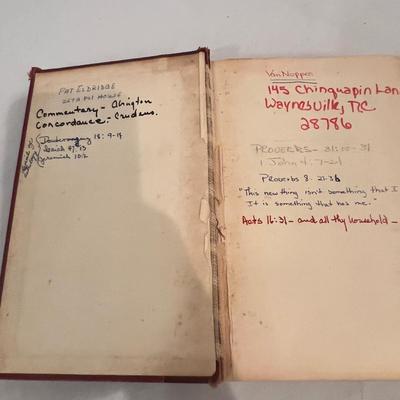 PAT ELDRIDGE
ZETA PSI HOUSE
Commentary - Abington
Concordance - Crudens.
Deuteronomy 18:9-14
Isaiah 47:13
Jeremiah 10:2
Van Noppen
145 Chinquapin Lan
Waynesville, NC
28786
PROVERBS - 31:10-31
1 John 4:7-21
Proverbs 8:22-36
"This new thing isn't something that I
It is something that has me."
Acts 16:31 - and all thy household -